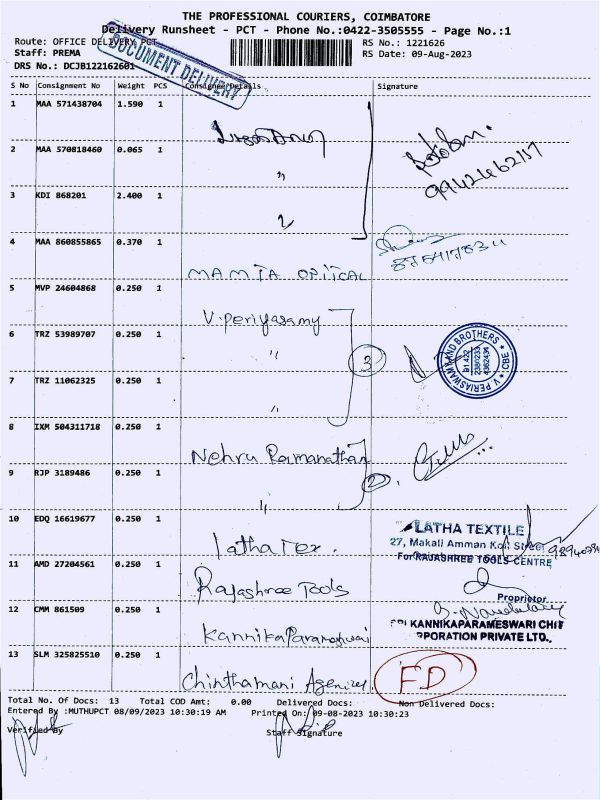 THE PROFESSIONAL COURIERS, COIMBATORE
Delivery Runsheet - PCT - Phone No.:0422-3505555 - Page No.:1
Route: OFFICE DELIVERY PCT RS No.: 1221626
Staff: PREMA RS Date: 09-Aug-2023
DRS No.: DCJB122162601
DOCUMENT DELIVERY
S No Consignment No Weight PCS Consignee Details Signature
1 MAA 571438704 1.590 1
2 MAA 570818460 0.065 1 "
3 KDI 868201 2.400 1
4 MAA 860855865 0.370 1 MAMTA OPTICAL
5 MVP 24604868 0.250 1 V.periyasamy
6 TRZ 53989707 0.250 1 " 3
V. PERIASWAMY AND BROTHERS * CBE *
7 TRZ 11062325 0.250 1 "
8 IXM 504311718 0.250 1 Nehru Ramanathan
9 RJP 3189486 0.250 1 " 2
10 EDQ 16619677 0.250 1 Latha Tex.
LATHA TEXTILE
27, Makali Amman Koil Street
For RAJASHREE TOOLS CENTRE
11 AMD 27204561 0.250 1 Rajashree Tools
Proprietor
12 CMM 861509 0.250 1 Kannika Parameshwari
SRI KANNIKAPARAMESWARI CHIT
CORPORATION PRIVATE LTD.,
13 SLM 325825510 0.250 1 Chinthamani Agencies FD
Total No. Of Docs: 13 Total COD Amt: 0.00 Delivered Docs: Non Delivered Docs:
Entered By :MUTHUPCT 08/09/2023 10:30:19 AM Printed On: 09-08-2023 10:30:23
Verified By Staff Signature